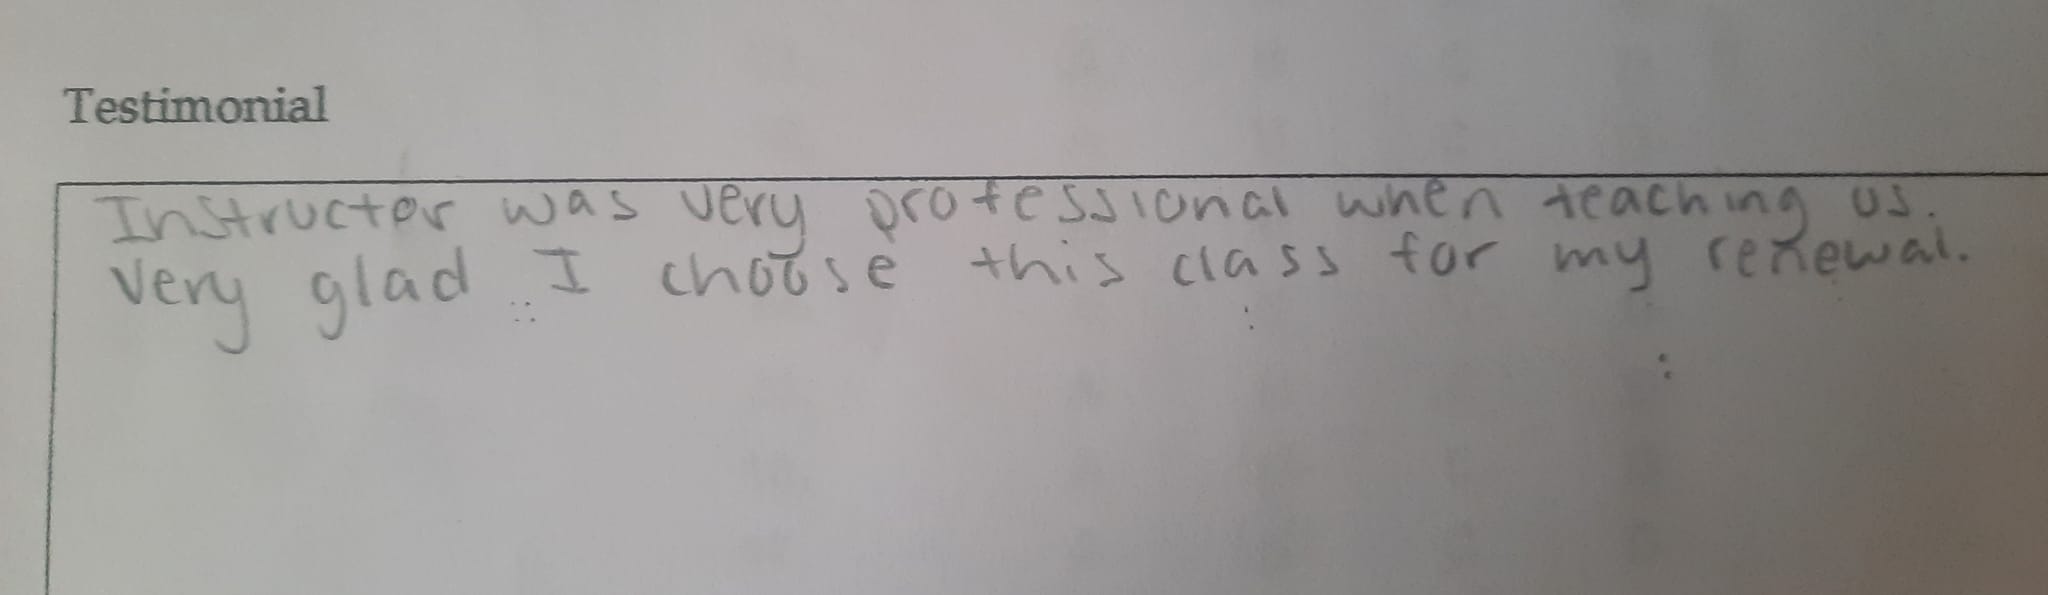 Testimonial
Instructor was very professional when teaching us.
Very glad I choose this class for my renewal.